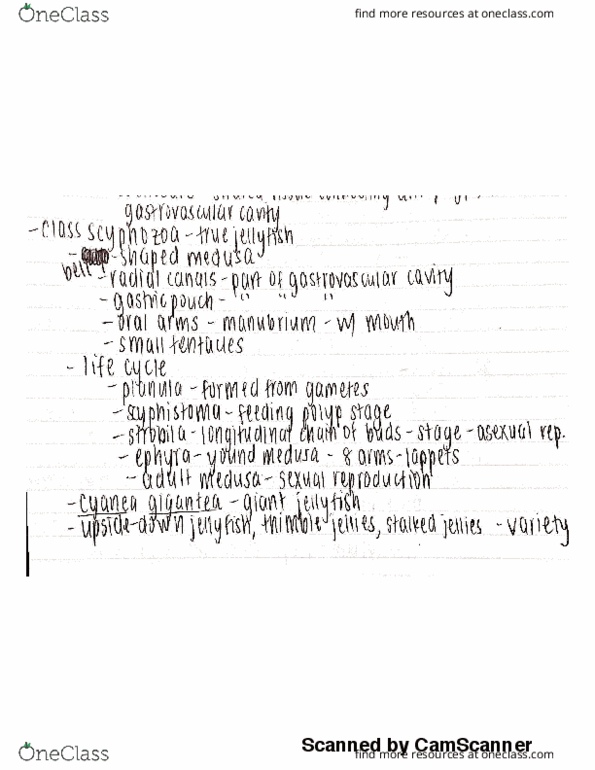 OneClass
find more resources at oneclass.com
gastrovascular cavity
- Class scyphozoa - true jellyfish
- bell-shaped medusa
- radial canals - part of gastrovascular cavity
- gastric pouch - " " "
- oral arms - manubrium - w/ mouth
- small tentacles
- life cycle
- planula - formed from gametes
- scyphistoma - feeding polyp stage
- strobila - longitudinal chain of buds - stage - asexual rep.
- ephyra - yound medusa - 8 arms - lappets
- adult medusa - sexual reproduction
- Cyanea gigantea - giant jellyfish
- upside-down jellyfish, thimble jellies, stalked jellies - variety
Scanned by CamScanner
OneClass
find more resources at oneclass.com